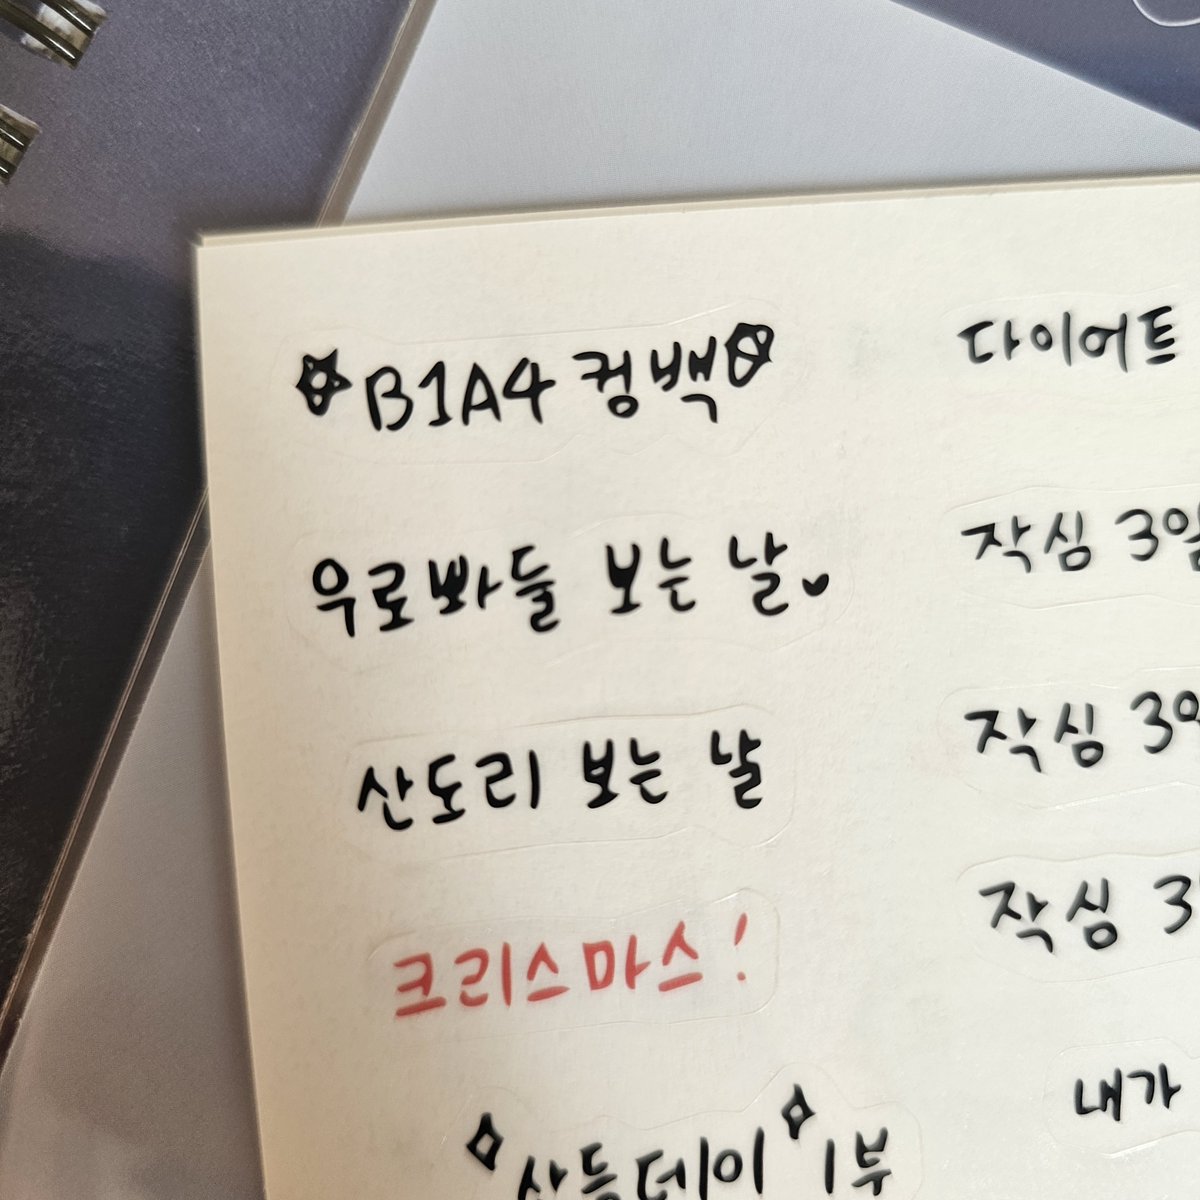 B1A4 컴백
우로빠들 보는 날
산도리 보는 날
크리스마스!
산들데이 1부
다이어트
작심 3일
작심 3
작심 3
내가